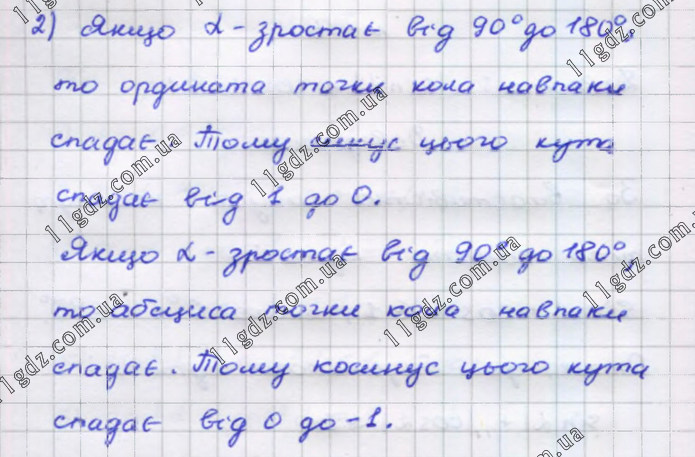 2) Якщо α - зростає від 90° до 180°,
то ордината точки кола навпаки
спадає. Тому синус цього кута
спадає від 1 до 0.
Якщо α - зростає від 90° до 180°,
то абсциса точки кола навпаки
спадає. Тому косинус цього кута
спадає від 0 до -1.
11gdz.com.ua
11gdz.com.ua
11gdz.com.ua
11gdz.com.ua
11gdz.com.ua
11gdz.com.ua
11gdz.com.ua